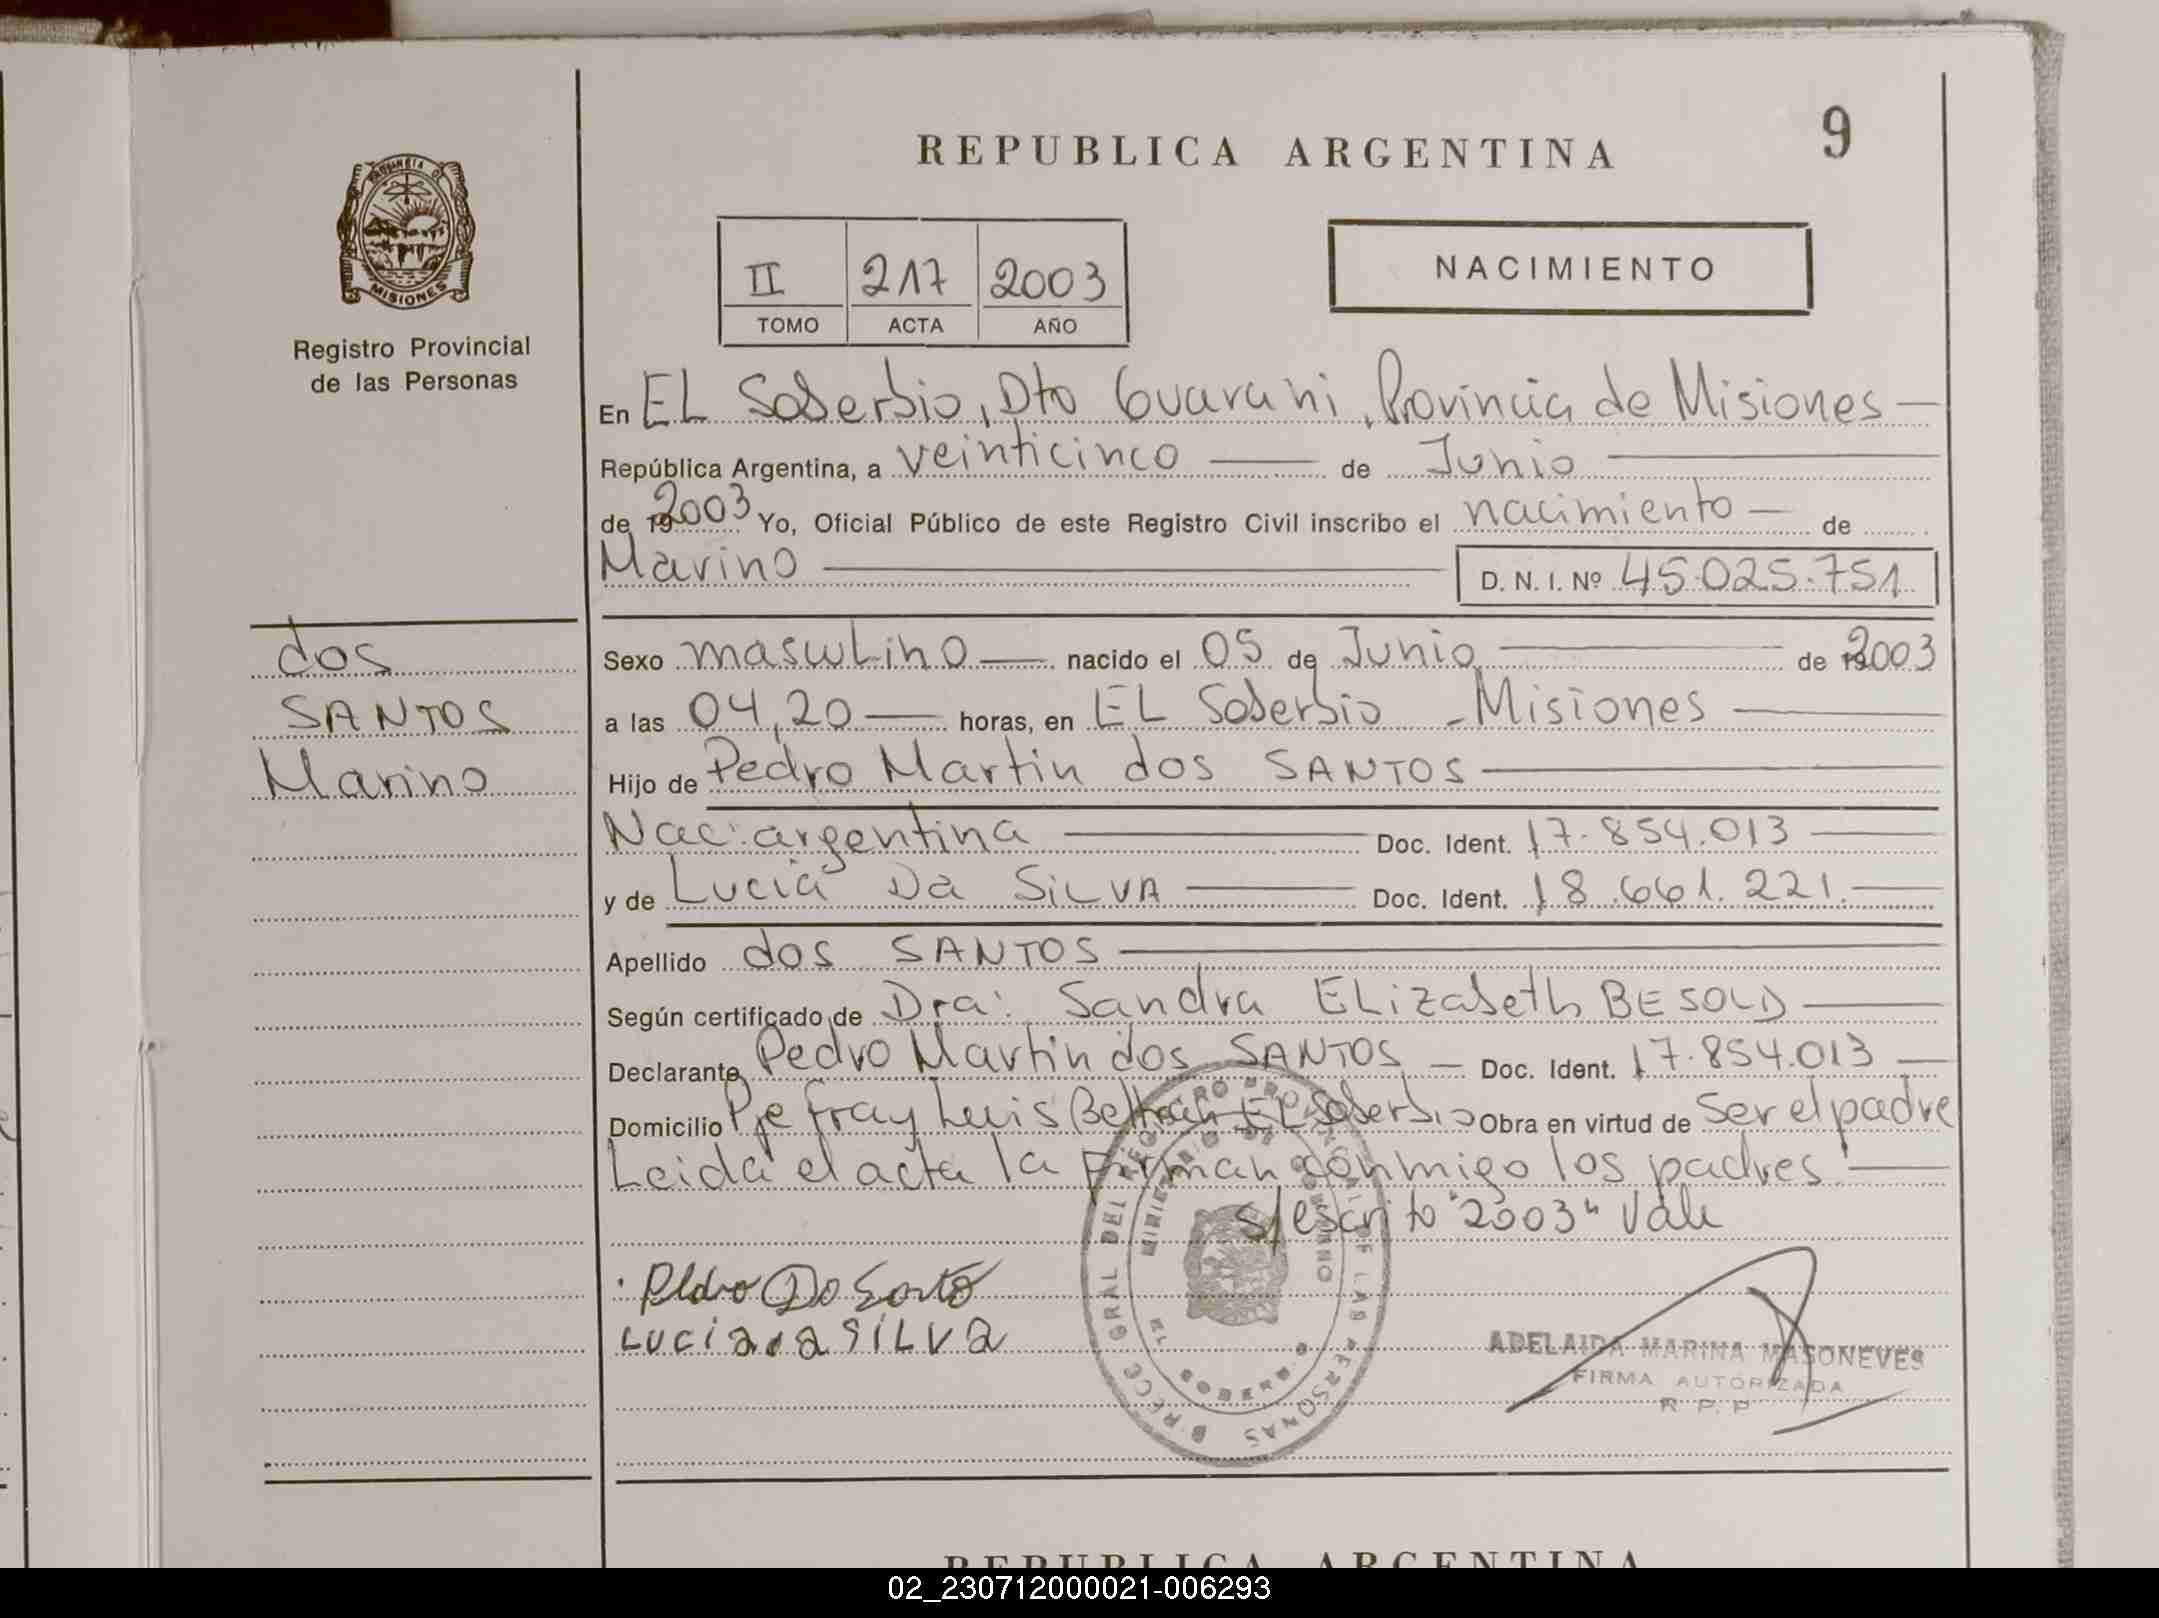 REPUBLICA ARGENTINA
9
PROVINCIA DE
MISIONES
Registro Provincial
de las Personas
II 217 2003
TOMO ACTA AÑO
NACIMIENTO
En EL Soberbio, Dto Guarani, Provincia de Misiones
República Argentina, a veinticinco de Junio
de 2003 Yo, Oficial Público de este Registro Civil inscribo el nacimiento de
Marino D. N. I. Nº 45.025.751
dos
SANTOS
Marino
Sexo masculino nacido el 05 de Junio de 2003
a las 04,20 horas, en EL Soberbio - Misiones
Hijo de Pedro Martin dos SANTOS
Nac: argentina Doc. Ident. 17.854.013
y de Lucia Da SiLVA Doc. Ident. 18.661.221.
Apellido dos SANTOS
Según certificado de Dra: Sandra ELizabeth BESOLD
Declarante Pedro Martin dos SANTOS Doc. Ident. 17.854.013
Domicilio Pje fray Luis Beltran EL Soberbio Obra en virtud de Ser el padre
Leida el acta la Firman conmigo los padres
s/escrito "2003" Vale
LUCIA da SILVA
DIRECC GRAL DEL REGISTRO PROVINCIAL DE LAS PERSONAS
MINISTERIO DE GOBIERNO
EL SOBERBIO
ADELAIDA MARINA MASONEVES
FIRMA AUTORIZADA
R. P. P.
REPUBLICA ARGENTINA
02_230712000021-006293